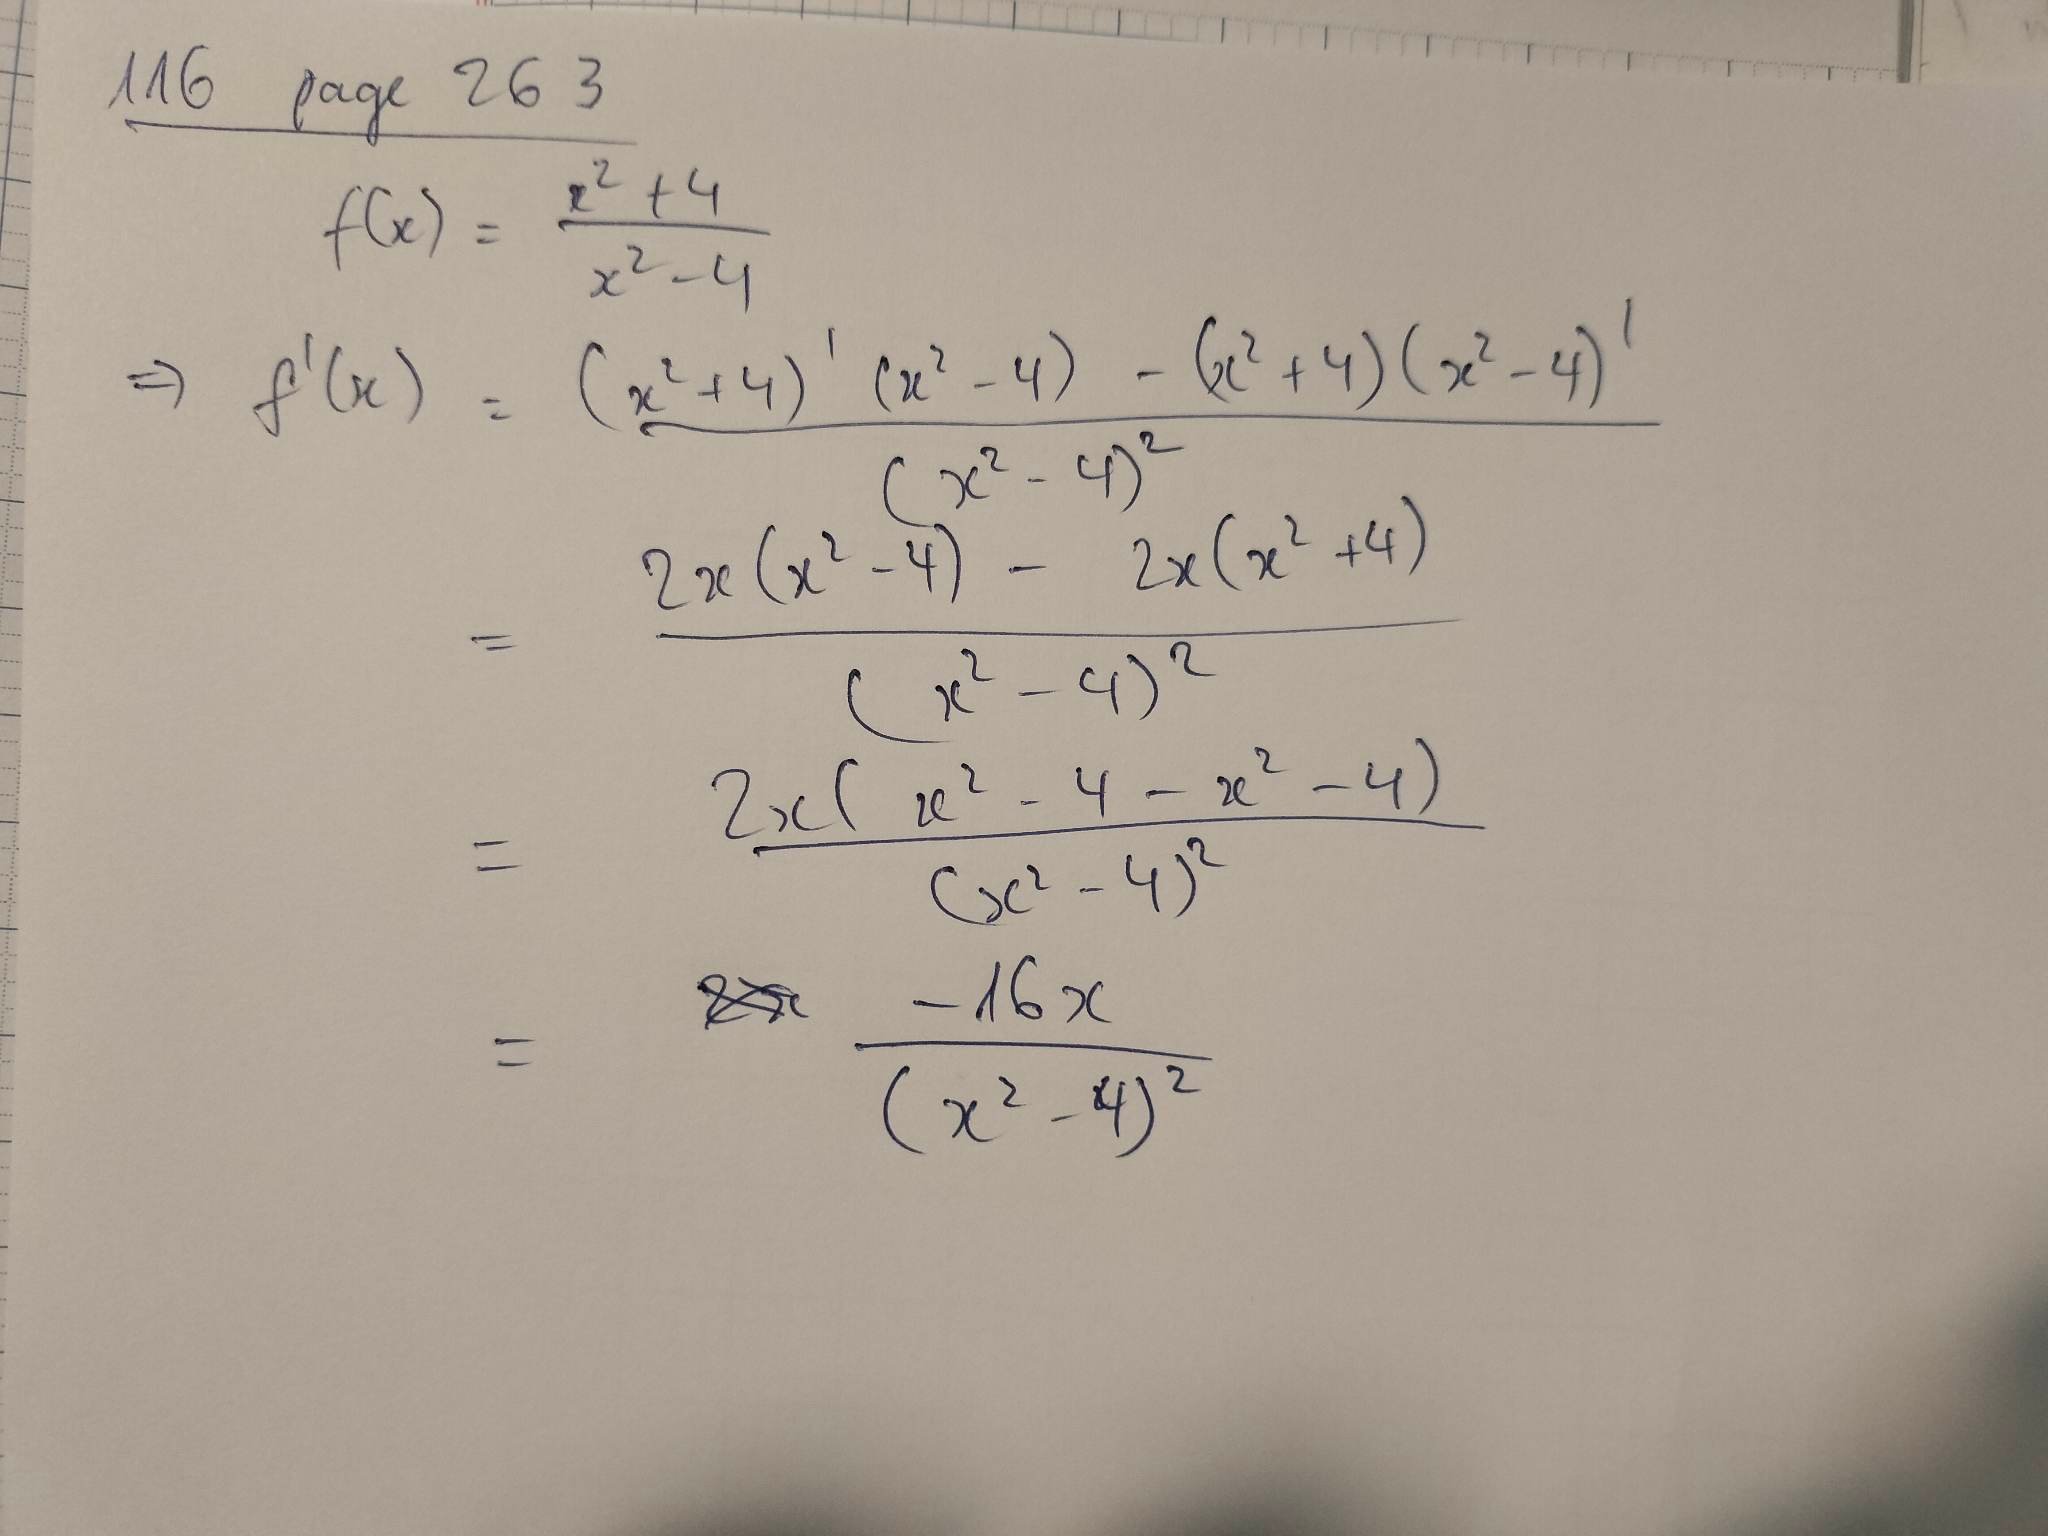 116 page 263
f(x) = (x² + 4) / (x² - 4)
⇒ f'(x) = ((x² + 4)' (x² - 4) - (x² + 4)(x² - 4)') / (x² - 4)²
= (2x(x² - 4) - 2x(x² + 4)) / (x² - 4)²
= 2x(x² - 4 - x² - 4) / (x² - 4)²
= -16x / (x² - 4)²